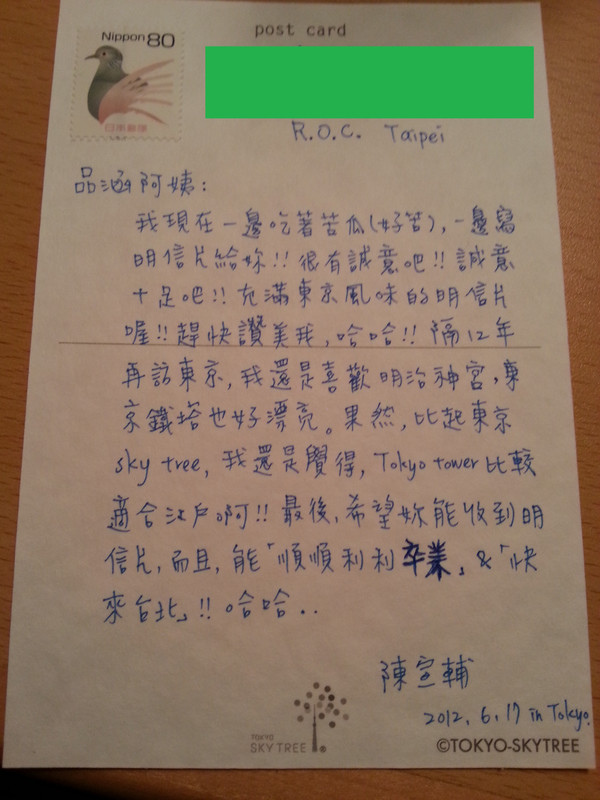 post card
Nippon 80
日本郵便
R.O.C. Taipei
品涵阿姨：
我現在一邊吃著苦瓜(好苦)，一邊寫
明信片給妳!! 很有誠意吧!! 誠意
十足吧!! 充滿東京風味的明信片
喔!! 趕快讚美我，哈哈!! 隔12年
再訪東京，我還是喜歡明治神宮，東
京鐵塔也好漂亮。果然，比起東京
sky tree, 我還是覺得，Tokyo tower 比較
適合江戶啊!! 最後，希望妳能收到明
信片，而且，能「順順利利卒業」&「快
來台北」!! 哈哈..
陳宣輔
2012. 6. 17 in Tokyo.
TOKYO
SKYTREE
©TOKYO-SKYTREE